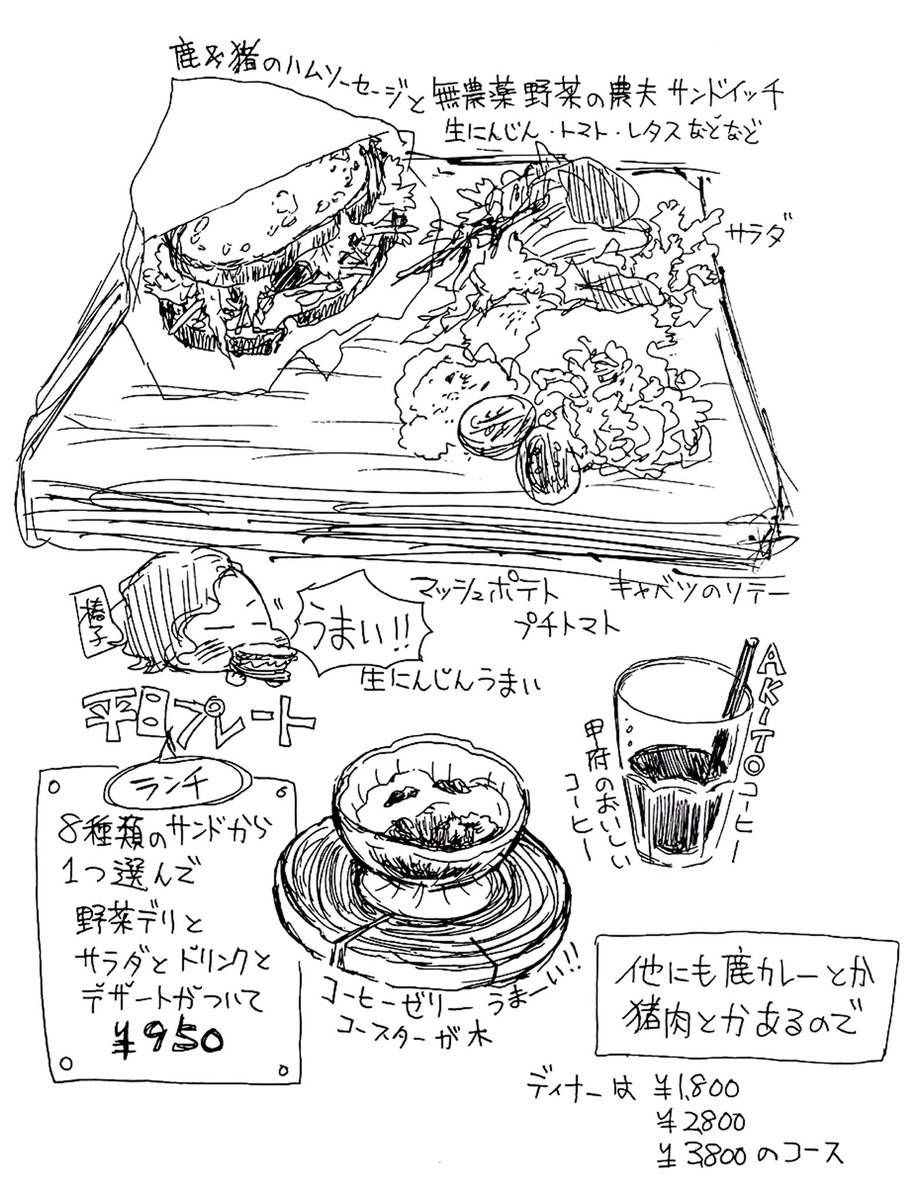 鹿&猪のハムソーセージと無農薬野菜の農夫サンドイッチ
生にんじん・トマト・レタスなどなど
サラダ
マッシュポテト
プチトマト
キャベツのソテー
椿子
うまい!!
生にんじんうまい
平日プレート
ランチ
8種類のサンドから
1つ選んで
野菜デリと
サラダとドリンクと
デザートがついて
¥950
AKITOコーヒー
甲府のおいしい
コーヒー
コーヒーゼリーうまーい!!
コースターが木
他にも鹿カレーとか
猪肉とかあるので
ディナーは ¥1,800
¥2800
¥3,800のコース